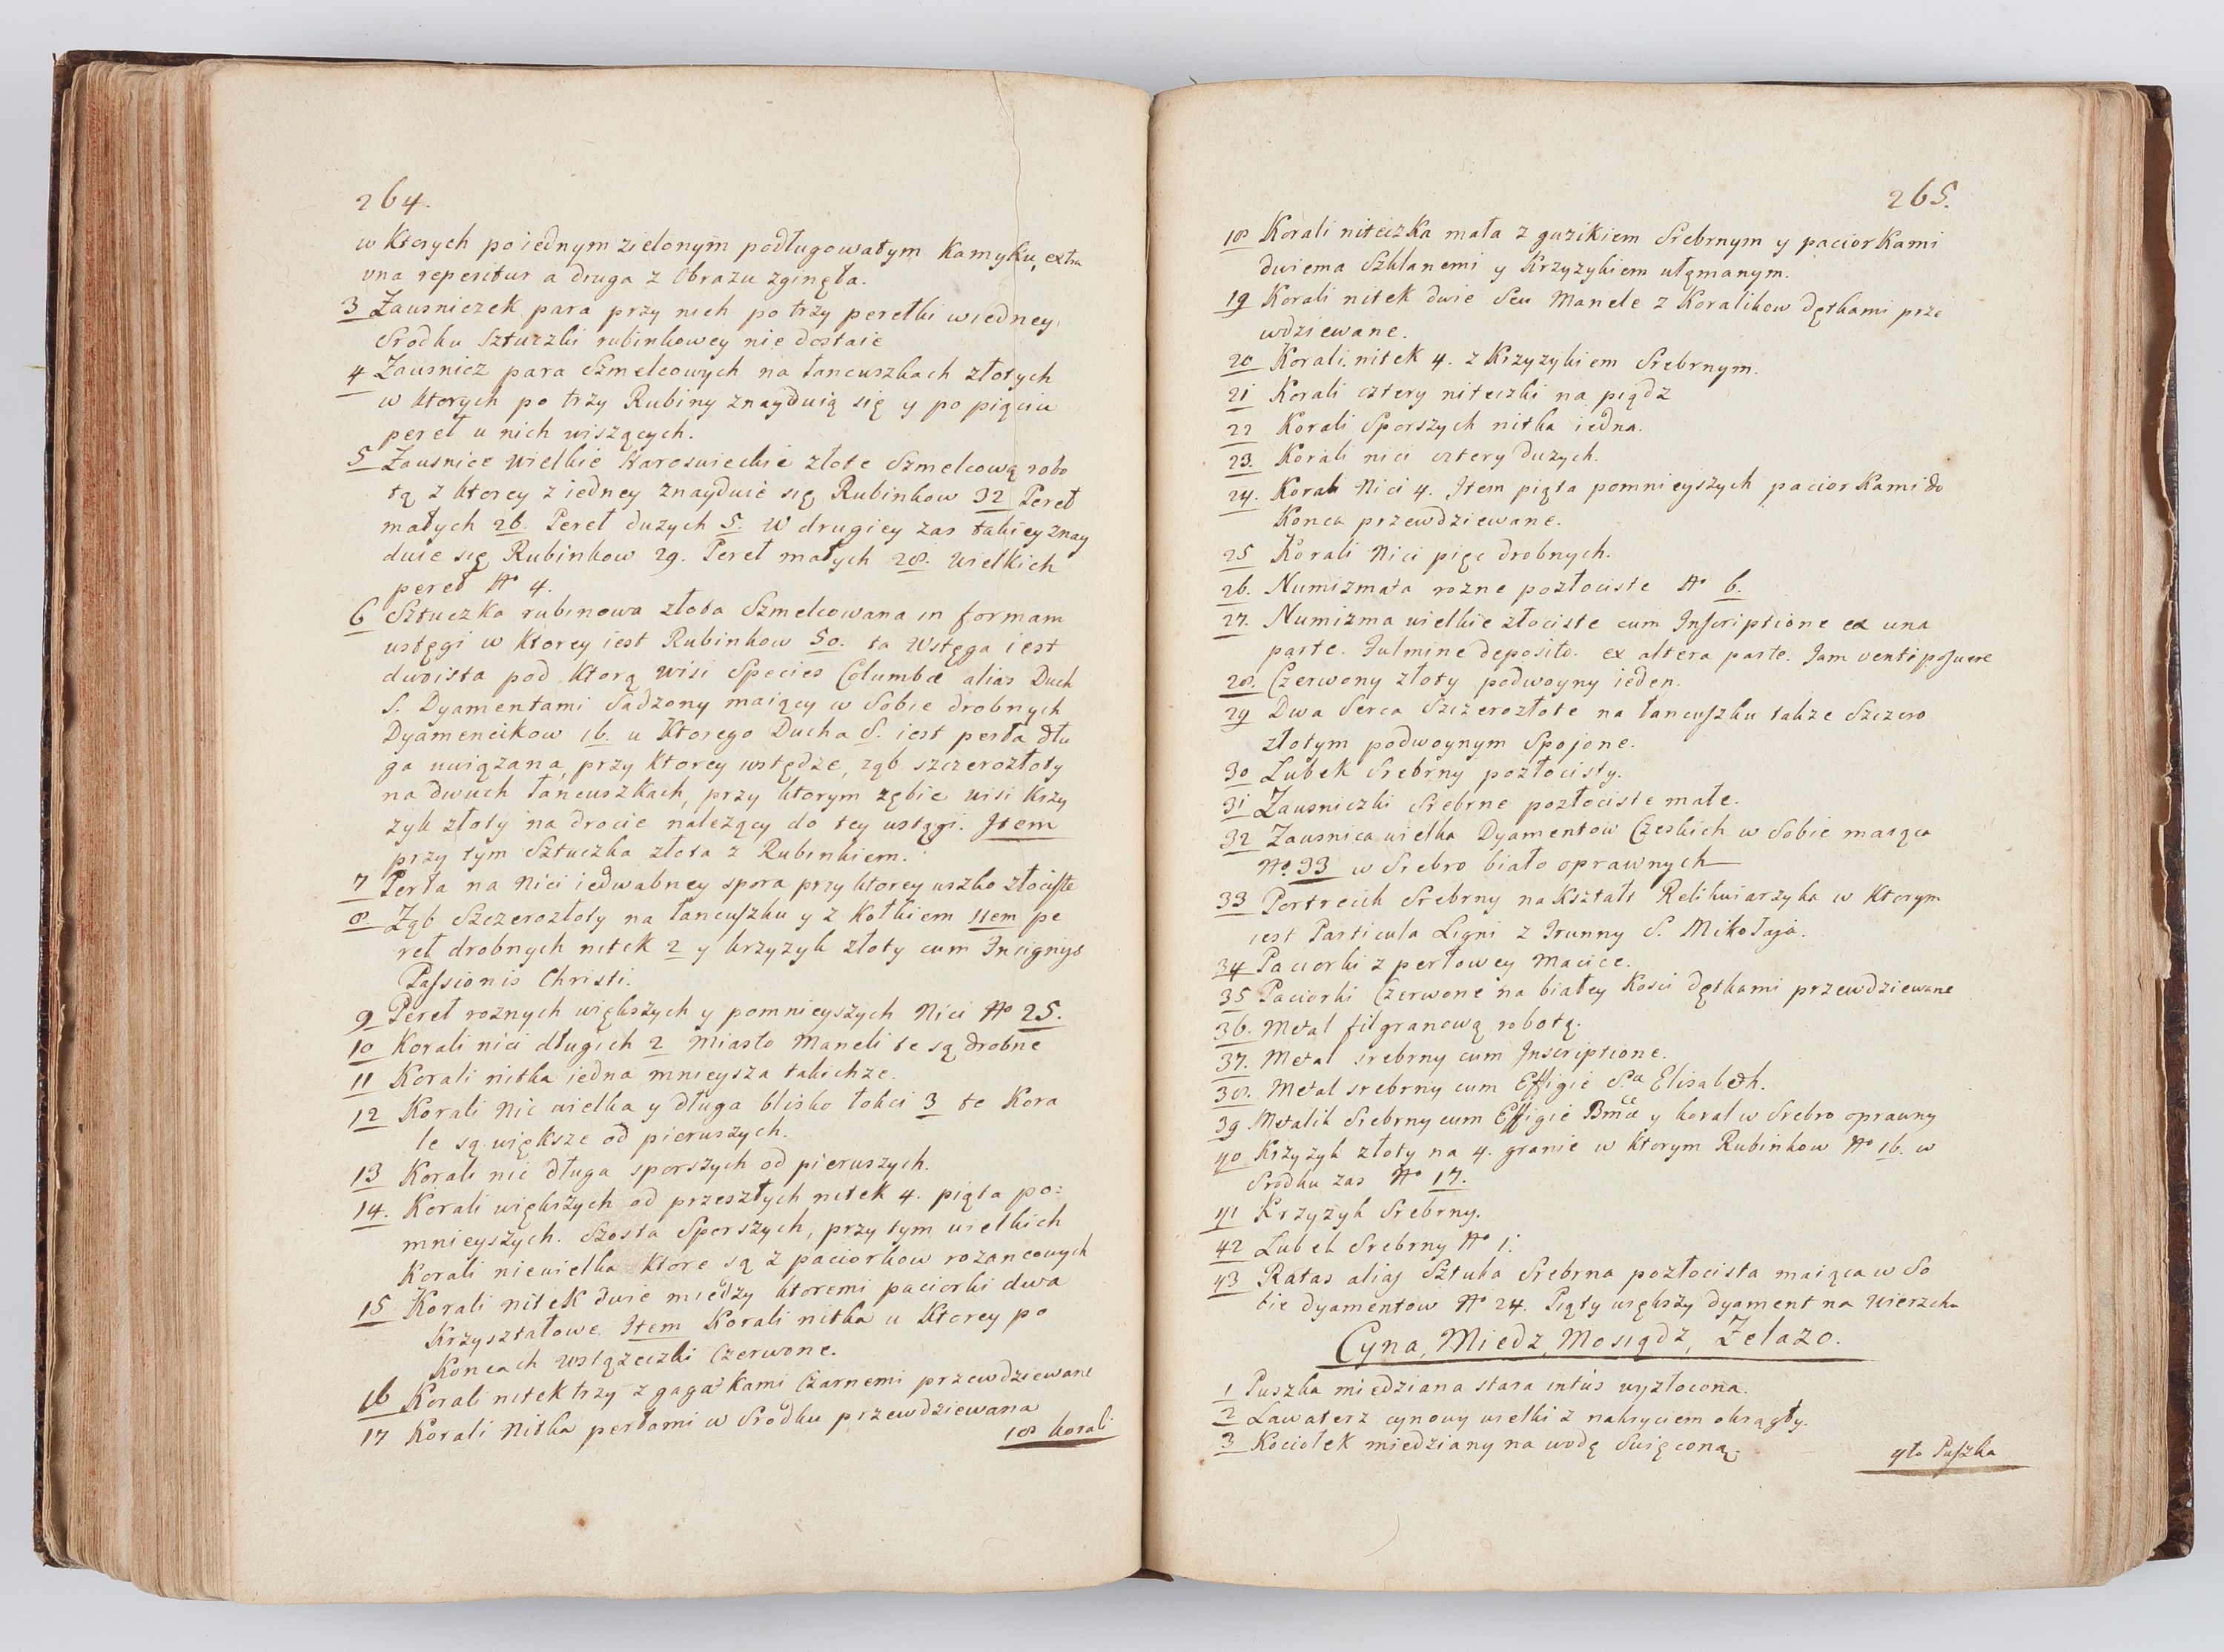 264.
w ktorych po iednym zielonym podługowatym kamyku, extra
una reperitur a druga z Obrazu zginęła.
3 Zausniczek para przy nich po trzy peretki w iedney
Srodku sztuczki rubinkowey nie dostaie
4 Zausnicz para Szmelcowych na łancuszkach złotych
w ktorych po trzy Rubiny znayduią się y po pięciu
pereł u nich wiszących.
5 Zausnice wielkie staroswieckie złote Szmelcową robo
tą z ktorey z iedney znayduie się Rubinkow 32 Pereł
małych 26. Pereł duzych 5. W drugiey zas takiey znay
duie się Rubinkow 29. Pereł małych 28. wielkich
pereł No 4.
6 Sztuczka rubinowa złota Szmelcowana in formam
wstęgi w ktorey iest Rubinkow 50. ta Wstęga iest
dwoista pod ktorą wisi Species Columbæ alias Duch
S. Dyamentami Sadzony maiący w Sobie drobnych
Dyamencikow 16. u ktorego Ducha S. iest perła dłu
ga uwiązana, przy ktorey wstędze, ząb szczerozłoty
na dwuch łancuszkach, przy ktorym zębie wisi krzy
zyk złoty na drocie nalezący do tey wstęgi. Item
przy tym Sztuczka złota z Rubinkiem.
7 Perła na Nici iedwabney spora przy ktorey uszko złociste
8. Ząb Szczerozłoty na łancuszku y z kołkiem Item pe
reł drobnych nitek 2 y krzyzyk złoty cum Insignijs
Passionis Christi.
9 Pereł roznych większych y pomnieyszych Nici No 25.
10 Korali nici długich 2 miasto Maneli te są drobne
11 Korali nitka iedna mnieysza takichze.
12 Korali Nic wielka y długa blisko łokci 3 te Kora
le są większe od pierwszych.
13 Korali nic długa sporszych od pierwszych.
14. Korali większych od przeszłych nitek 4. piąta po=
mnieyszych. Szosta Sporszych, przy tym wielkich
Korali niewielka ktore są z paciorkow rozancowych
15 Korali nitek dwie między ktoremi paciorki dwa
Krzyształowe. Item Korali nitka u ktorey po
Koncach wstązeczki Czerwone.
16 Korali nitek trzy z gagatkami Czarnemi przewdziewane
17 Korali Nitka perłami w Srodku przewdziewana
18 korali
265.
18 Korali niteczka mała z guzikiem Srebrnym y paciorkami
dwiema Szklanemi y Krzyzykiem ułąmanym.
19 Korali nitek dwie Seu Manele z Koralikow dętkami prze
wdziewane.
20 Korali nitek 4. z Krzyzykiem Srebrnym.
21 Korali cztery niteczki na piądz
22 Korali Sporszych nitka iedna.
23. Korali nici cztery duzych.
24. Korali Nici 4. Item piąta pomnieyszych paciorkami do
Konca przewdziewane.
25 Korali Nici pięc drobnych.
26. Numizmata rozne pozłociste No 6.
27. Numizma wielkie złociste cum Inscriptione ex una
parte. Fulmine deposito. ex altera parte. Jam venti posuere
28. Czerwony złoty podwoyny ieden.
29 Dwa Serca Szczerozłote na łancuszku takze Szczero
złotym podwoynym Spojone.
30 Lubek Srebrny pozłocisty.
31 Zausniczki Srebrne pozłociste małe.
32 Zausnica wielka Dyamentow Czeskich w Sobie maiąca
No 33 w Srebro biało oprawnych
33 Portrecik Srebrny na Kształt Relikwiarzyka w ktorym
iest Particula Ligni z Trunny S. Mikołaja.
34 Paciorki z perłowey Macice.
35 Paciorki Czerwone na białey Kosci dętkami przewdziewane
36. Metal filgranową robotą.
37. Metal srebrny cum Inscriptione.
38. Metal srebrny cum Effigie S.æ Elisabeth.
39 Metalik Srebrny cum Effigie Bmæ y koral w Srebro oprawny
40 Krzyzyk złoty na 4. granie w ktorym Rubinkow No 16. w
Srodku zas No 17.
41 Krzyzyk Srebrny.
42 Lubek Srebrny No 1.
43 Ratas alias Sztuka Srebrna pozłocista maiąca w So
bie dyamentow No 24. Piąty większy dyament na wierzchu
Cyna, Miedz, Mosiądz, Żelazo.
1 Puszka miedziana stara intus wyzłocona.
2 Lawaterz cynowy wielki z nakryciem okrągły.
3 Kociołek miedziany na wodę Swięconą.
4to Puszka